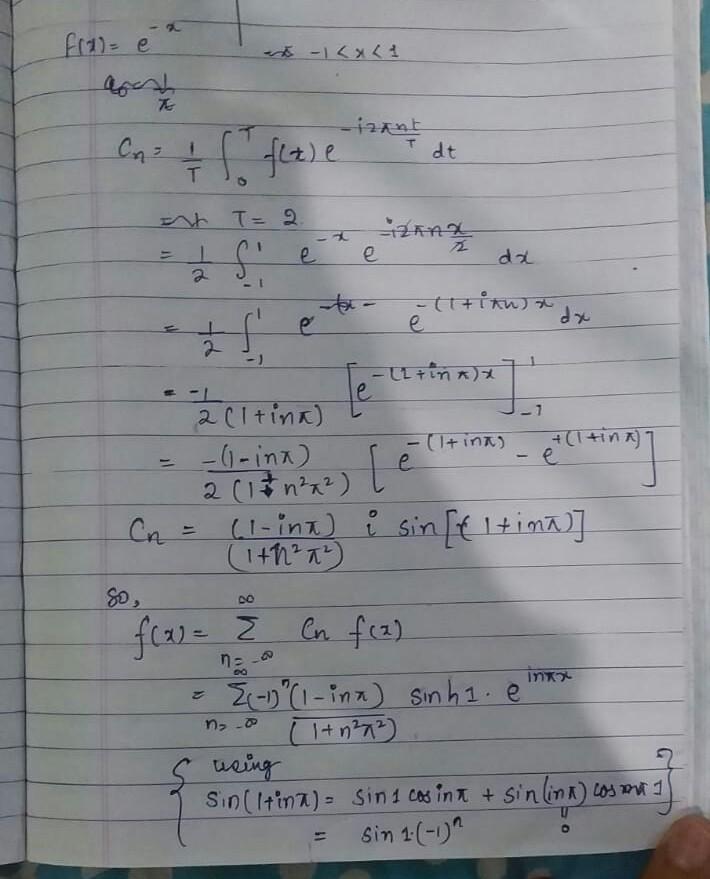 f(x) = e^{-x} -1 < x < 1
C_n = 1/T ∫_0^T f(t) e^{-i2πnt/T} dt
T = 2
= 1/2 ∫_{-1}^1 e^{-x} e^{-i2πn x/2} dx
= 1/2 ∫_{-1}^1 e^{-(1+iπn)x} dx
= -1/2(1+inπ) [e^{-(1+inπ)x}]_{-1}^1
= -(1-inπ)/2(1+n²π²) [e^{-(1+inπ)} - e^{+(1+inπ)}]
C_n = (1-inπ)/(1+n²π²) i sin[(1+inπ)]
so,
f(x) = Σ_{n=-∞}^∞ C_n f(x)
= Σ_{n=-∞}^∞ (-1)^n (1-inπ)/(1+n²π²) sinh1 · e^{inπx}
{ using
sin(1+inπ) = sin1 cos inπ + sin(inπ) cos 1 }
= sin1·(-1)^n 0